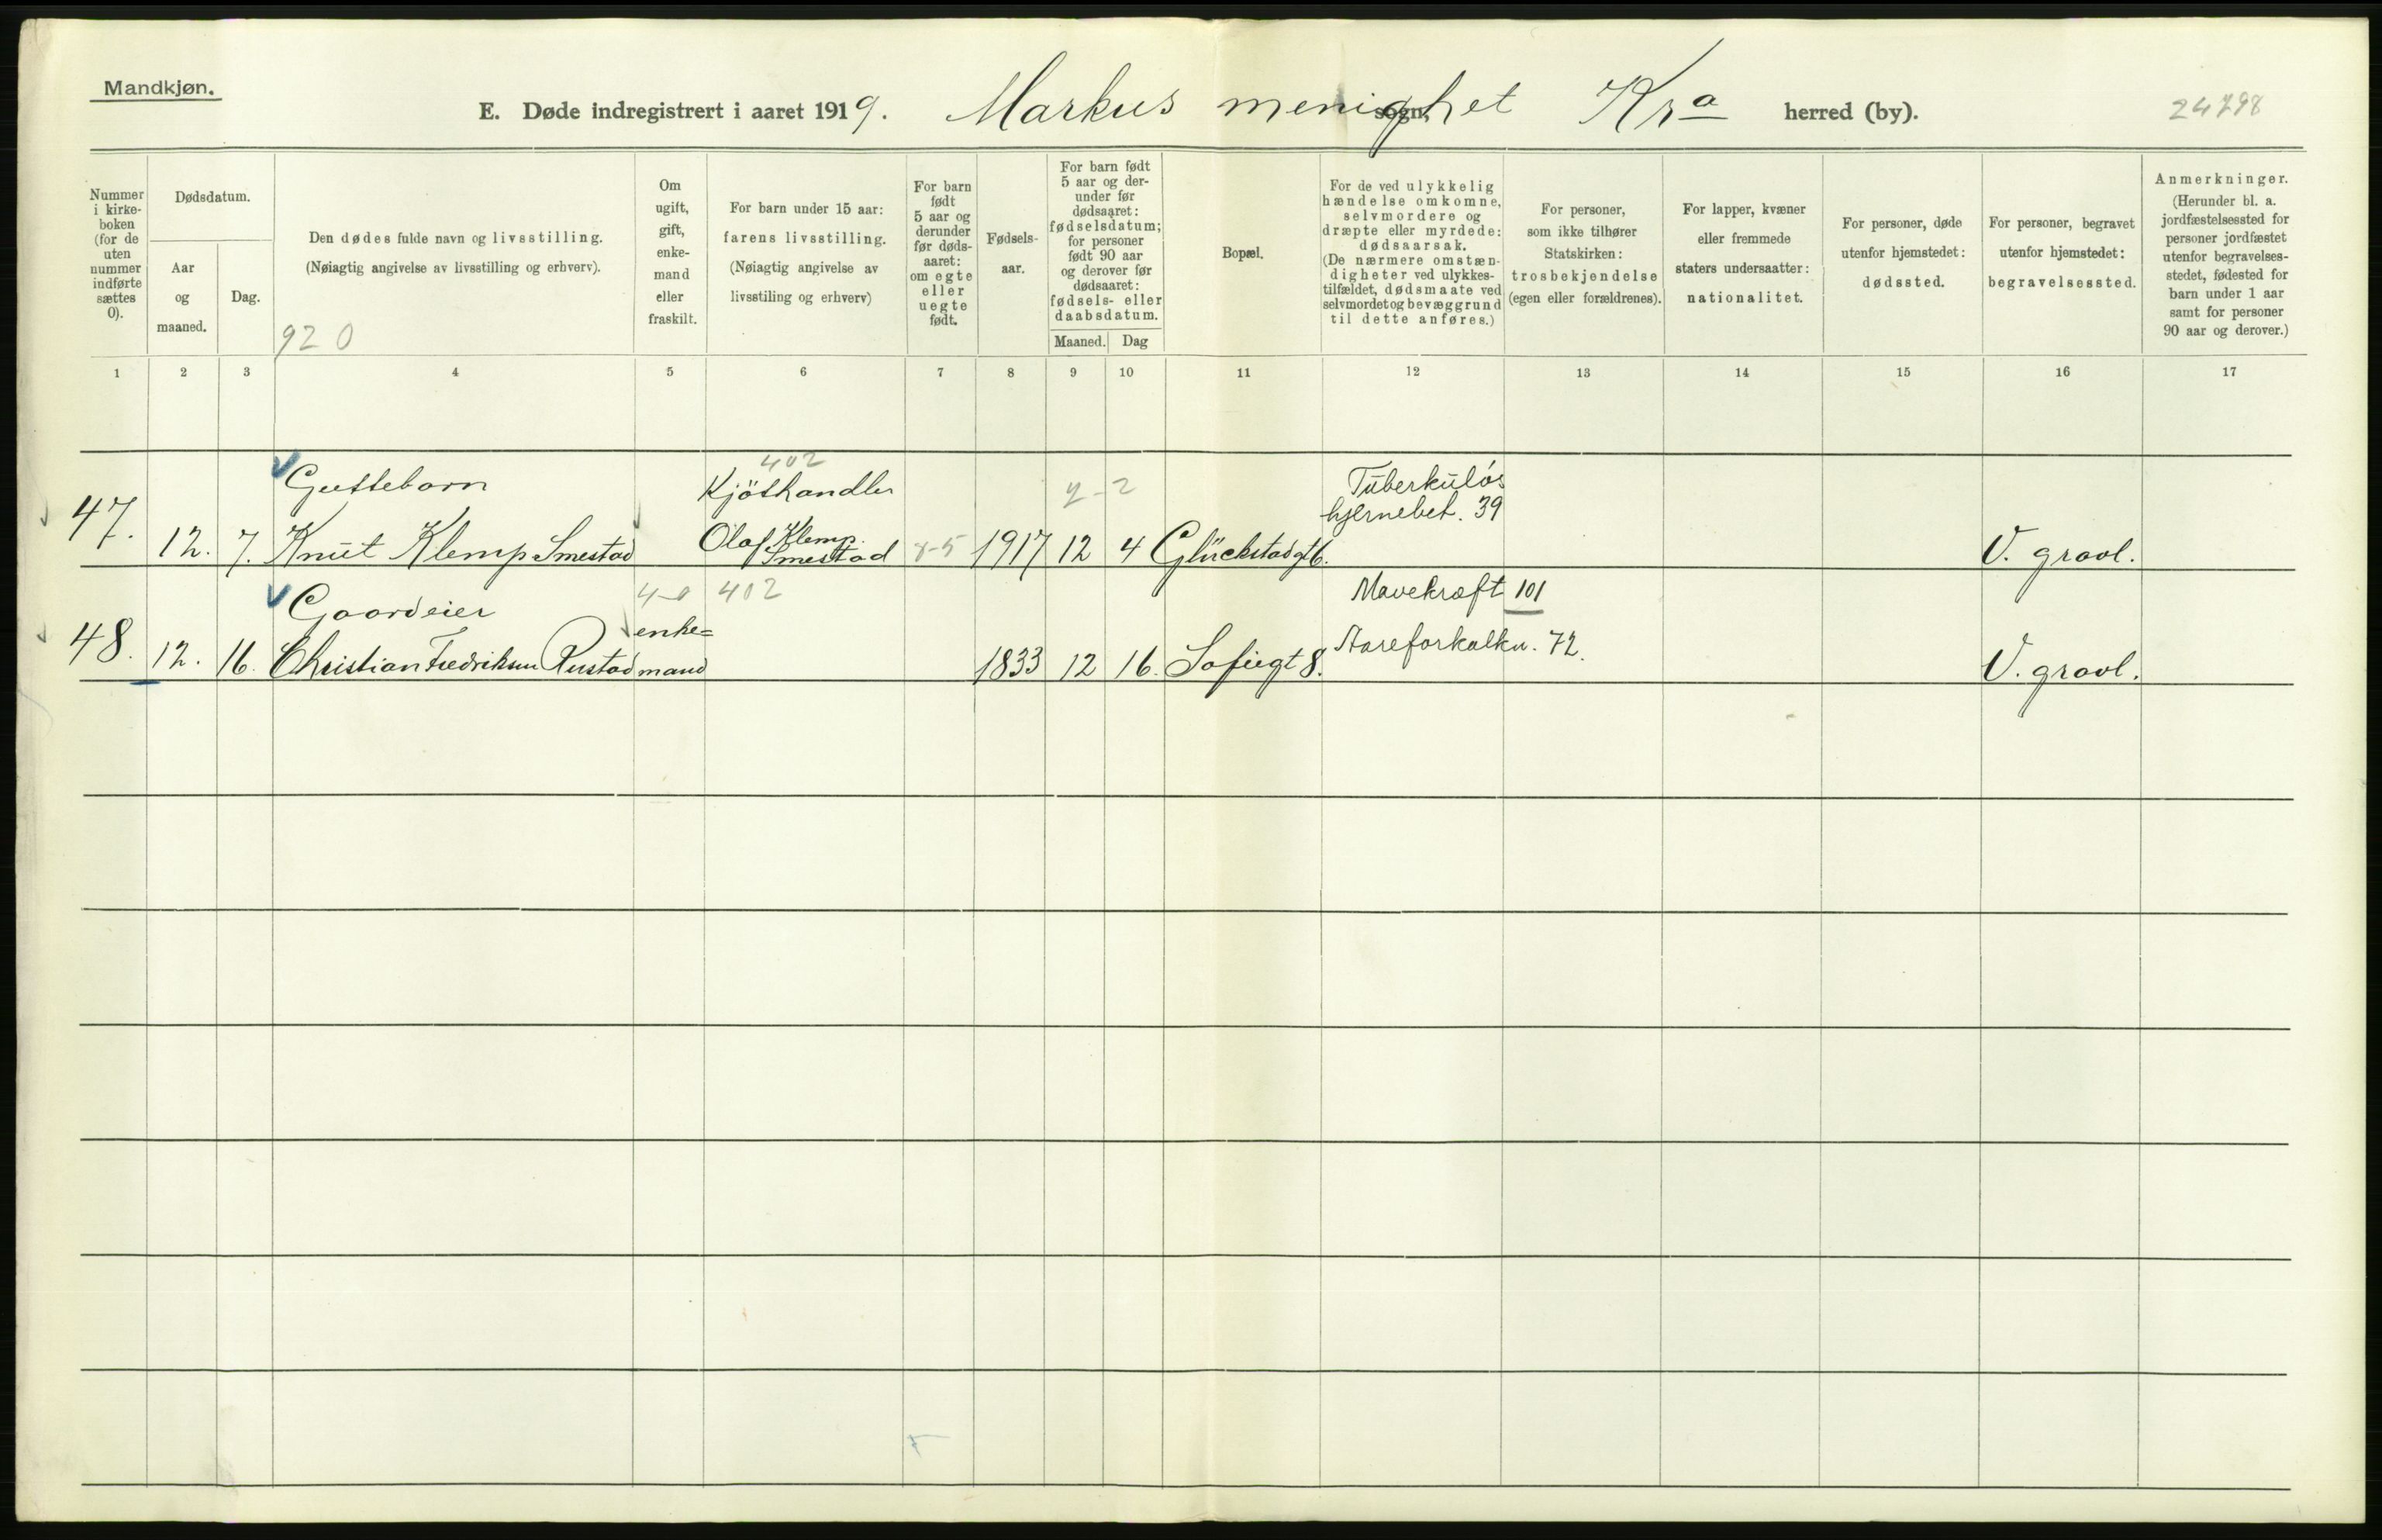 Mandkjøn.
E. Døde indregistrert i aaret 1919. Markus menighet sogn, Kra herred (by). 24798
Nummer i kirke- boken (for de uten nummer indførte sættes 0).
Dødsdatum.
Aar og maaned.
Dag.
Den dødes fulde navn og livsstilling.
(Nøiagtig angivelse av livsstilling og erhverv).
920
Om ugift, gift, enke- mand eller fraskilt.
For barn under 15 aar: farens livsstilling.
(Nøiagtig angivelse av livsstiling og erhverv)
For barn født 5 aar og derunder før døds- aaret: om egte eller uegte født.
Fødsels- aar.
For barn født 5 aar og der- under før dødsaaret: fødselsdatum; for personer født 90 aar og derover før dødsaaret: fødsels- eller daabsdatum.
Maaned. Dag
Bopæl.
For de ved ulykkelig hændelse omkomne, selvmordere og dræpte eller myrdede: dødsaarsak.
(De nærmere omstæn- digheter ved ulykkes- tilfældet, dødsmaate ved selvmordet og bevæggrund til dette anføres.)
For personer, som ikke tilhører Statskirken: trosbekjendelse (egen eller forældrenes).
For lapper, kvæner eller fremmede staters undersaatter: nationalitet.
For personer, døde utenfor hjemstedet: dødssted.
For personer, begravet utenfor hjemstedet: begravelsessted.
Anmerkninger.
(Herunder bl. a. jordfæstelsessted for personer jordfæstet utenfor begravelses- stedet, fødested for barn under 1 aar samt for personer 90 aar og derover.)
1 2 3 4 5 6 7 8 9 10 11 12 13 14 15 16 17
402
Guttebarn Kjöthandler 2 Tuberkuløs
hjernebet. 39
47. 12. 7. Knut Klemp Smestad Olaf Klemp Smestad 1917 12 4 Glückstadgt 6. V. gravl.
402
Gaardeier Mavekræft 101
48. 12. 16. Christian Fredriksen Rustad enke= mand 1833 12 16. Sofiegt 8. Aareforkalkn. 72. V. gravl.